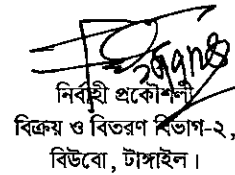 নির্বাহী প্রকৌশলী
বিক্রয় ও বিতরণ বিভাগ-২,
বিউবো, টাঙ্গাইল।